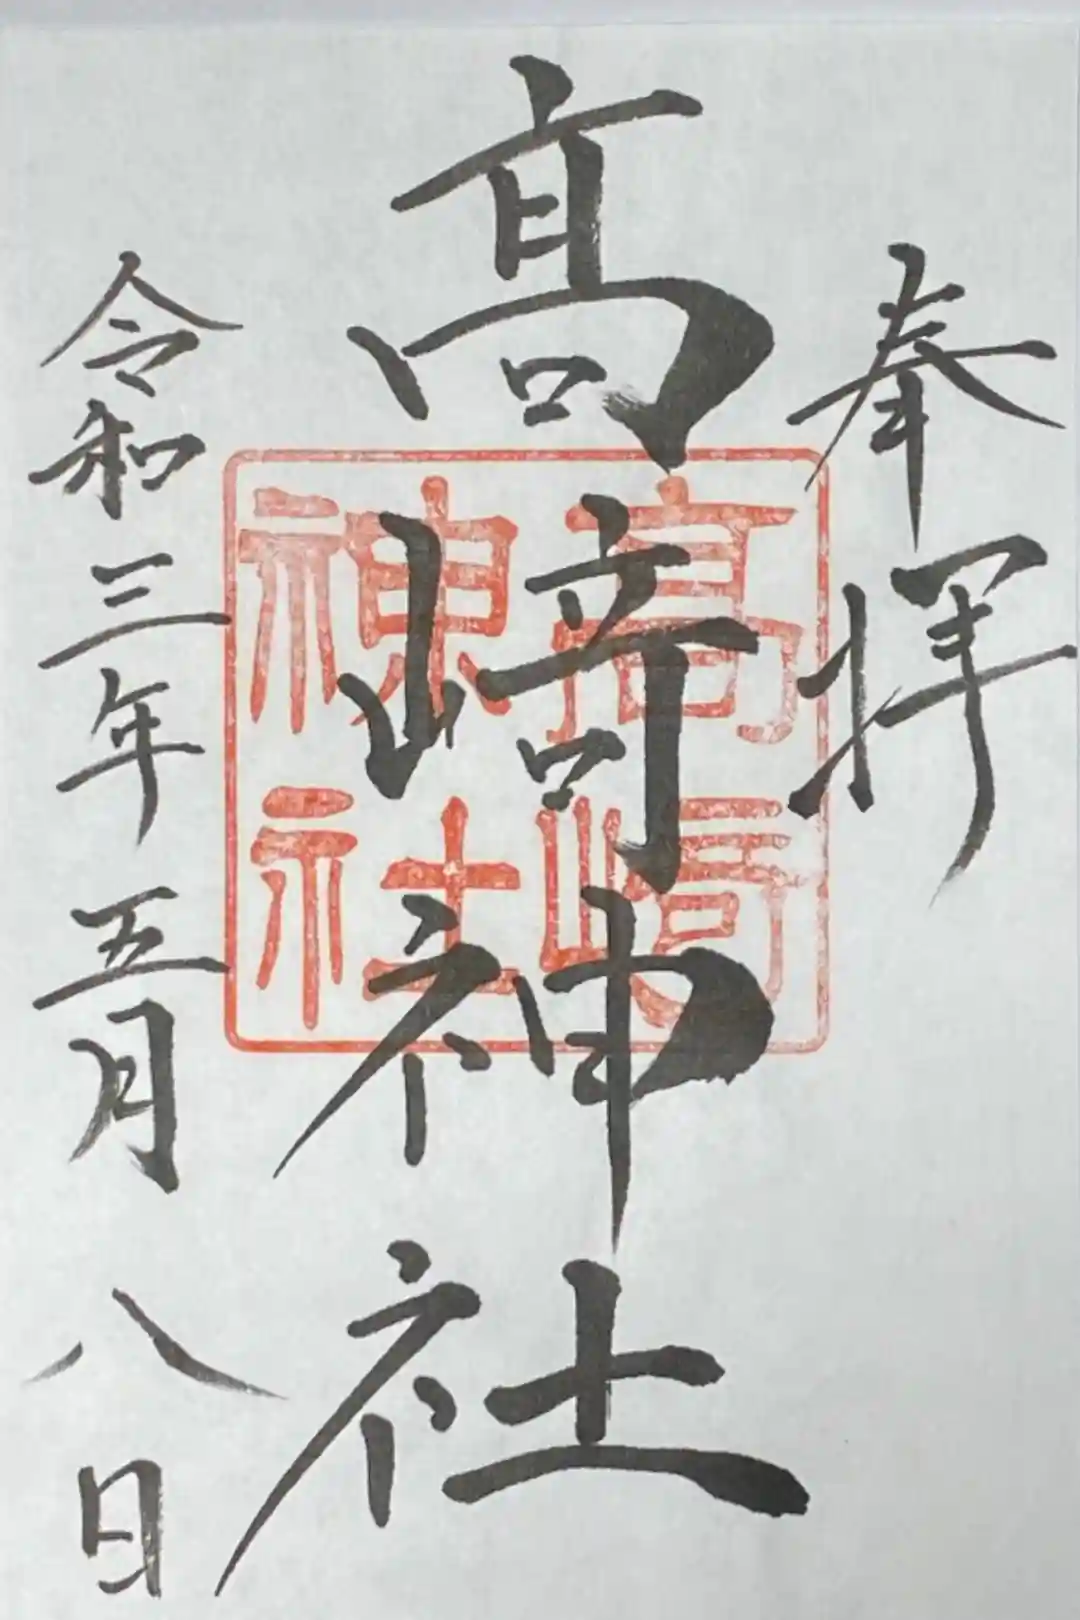 奉拝
髙﨑神社
高崎
神社
令和三年五月八日